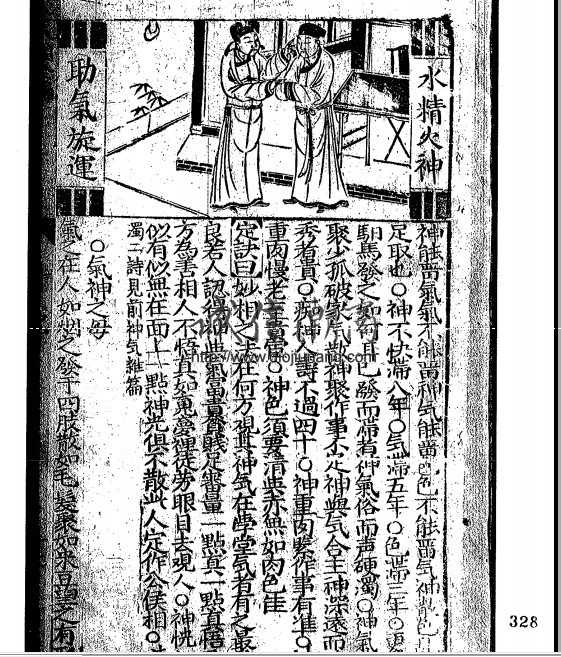 水精火神
助氣旋運
神能留氣氣不能留神氣能留色色不能留氣神與色
足取也○神不快滯八年○氣滯五年○色滯三年○更
馹馬發之如何且色發而滯有神氣俗而声硬濁○神氣
聚少孤破家氣與神聚作事不定神與气合主神深遠而
秀者貴○痴神人壽不過四十○神重肉緊作事有准○
重肉慢老至富
定訣曰妙相之法在何方視其神气在學堂氣者有之最
良若人認得些兒氣富貴貧賤足審量一點真一點真悟
方為善相人不悟真如鬼夢裡徒勞眼目去觀人○神恍
似有似無在面上一點神光俱不散此人定作公侯相○
濁二詩見前神气雜篇
○氣神之母
氣之在人如烟之發于四肢散如毛髮聚如朱豆望之有
誠信神奇
328